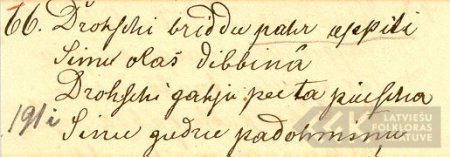 66. Drohschi briddu pahr uppiti
Simu olas dibbinâ
Drohschi gahju pee ta puischa
191i Sinu gudru padohminu
LATVIEŠU
FOLKLORAS
KRĀTUVE